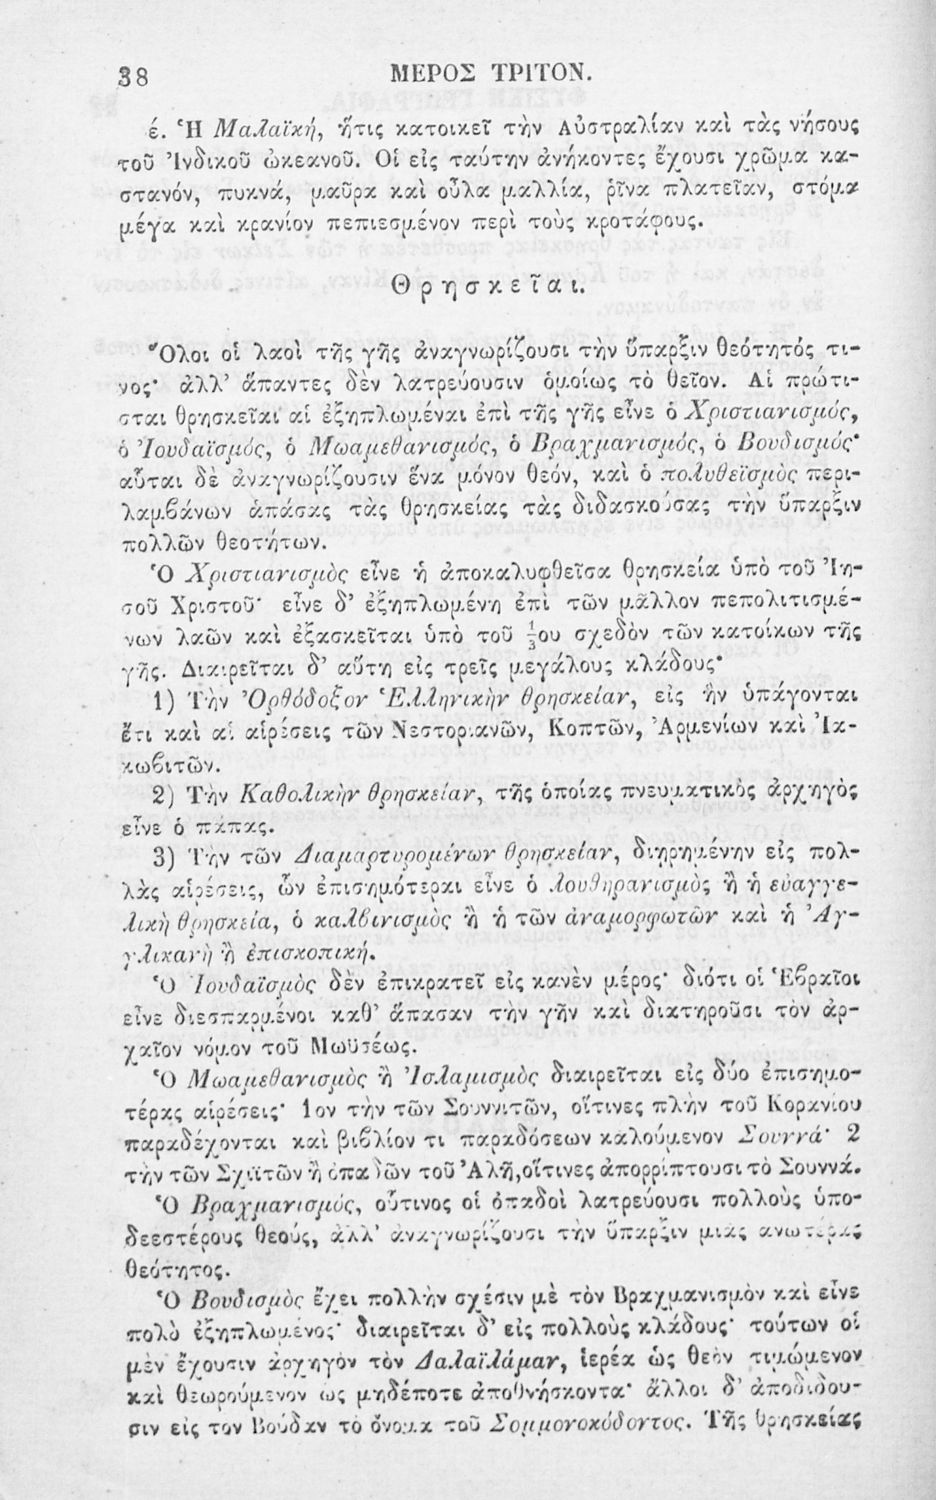 38
ΜΕΡΟΣ ΤΡΙΤΟΝ.
έ. Ἡ Μαλαϊκή, ἥτις κατοικεῖ τὴν Αὐστραλίαν καὶ τὰς νήσους
τοῦ Ἰνδικοῦ ὠκεανοῦ. Οἱ εἰς ταύτην ἀνήκοντες ἔχουσι χρῶμα κα-
στανόν, πυκνά, μαῦρα καὶ οὖλα μαλλία, ῥῖνα πλατεῖαν, στόμα
μέγα καὶ κρανίον πεπιεσμένον περὶ τοὺς κροτάφους.
Θρησκεῖαι.
Ὅλοι οἱ λαοὶ τῆς γῆς ἀναγνωρίζουσι τὴν ὕπαρξιν θεότητός τι-
νος· ἀλλ' ἅπαντες δὲν λατρεύουσιν ὁμοίως τὸ θεῖον. Αἱ πρώτι-
σται θρησκεῖαι αἱ ἐξηπλωμέναι ἐπὶ τῆς γῆς εἶνε ὁ Χριστιανισμός,
ὁ Ἰουδαϊσμός, ὁ Μωαμεθανισμός, ὁ Βραχμανισμός, ὁ Βουδισμός·
αὗται δὲ ἀναγνωρίζουσιν ἕνα μόνον θεόν, καὶ ὁ πολυθεϊσμὸς περι-
λαμβάνων ἁπάσας τὰς θρησκείας τὰς διδασκούσας τὴν ὕπαρξιν
πολλῶν θεοτήτων.
Ὁ Χριστιανισμὸς εἶνε ἡ ἀποκαλυφθεῖσα θρησκεία ὑπὸ τοῦ Ἰη-
σοῦ Χριστοῦ· εἶνε δ' ἐξηπλωμένη ἐπὶ τῶν μᾶλλον πεπολιτισμέ-
νων λαῶν καὶ ἐξασκεῖται ὑπὸ τοῦ ⅓ου σχεδὸν τῶν κατοίκων τῆς
γῆς. Διαιρεῖται δ' αὕτη εἰς τρεῖς μεγάλους κλάδους·
1) Τὴν Ὀρθόδοξον Ἑλληνικὴν θρησκείαν, εἰς ἣν ὑπάγονται
ἔτι καὶ αἱ αἱρέσεις τῶν Νεστοριανῶν, Κοπτῶν, Ἀρμενίων καὶ Ἰα-
κωβιτῶν.
2) Τὴν Καθολικὴν θρησκείαν, τῆς ὁποίας πνευματικὸς ἀρχηγὸς
εἶνε ὁ πάπας.
3) Τὴν τῶν Διαμαρτυρομένων θρησκείαν, διῃρημένην εἰς πολ-
λὰς αἱρέσεις, ὧν ἐπισημότεραι εἶνε ὁ λουθηρανισμὸς ἢ ἡ εὐαγγε-
λικὴ θρησκεία, ὁ καλβινισμὸς ἢ ἡ τῶν ἀναμορφωτῶν καὶ ἡ Ἀγ-
γλικανὴ ἢ ἐπισκοπική.
Ὁ Ἰουδαϊσμὸς δὲν ἐπικρατεῖ εἰς κανὲν μέρος· διότι οἱ Ἑβραῖοι
εἶνε διεσπαρμένοι καθ' ἅπασαν τὴν γῆν καὶ διατηροῦσι τὸν ἀρ-
χαῖον νόμον τοῦ Μωϋσέως.
Ὁ Μωαμεθανισμὸς ἢ Ἰσλαμισμὸς διαιρεῖται εἰς δύο ἐπισημο-
τέρας αἱρέσεις· 1ον τὴν τῶν Σουννιτῶν, οἵτινες πλὴν τοῦ Κορανίου
παραδέχονται καὶ βιβλίον τι παραδόσεων καλούμενον Σουννά· 2
τὴν τῶν Σχιϊτῶν ἢ ὀπαδῶν τοῦ Ἀλῆ,οἵτινες ἀπορρίπτουσι τὸ Σουννά.
Ὁ Βραχμανισμός, οὗτινος οἱ ὀπαδοὶ λατρεύουσι πολλοὺς ὑπο-
δεεστέρους θεούς, ἀλλ' ἀναγνωρίζουσι τὴν ὕπαρξιν μιᾶς ἀνωτέρας
θεότητος.
Ὁ Βουδισμὸς ἔχει πολλὴν σχέσιν μὲ τὸν Βραχμανισμὸν καὶ εἶνε
πολὺ ἐξηπλωμένος· διαιρεῖται δ' εἰς πολλοὺς κλάδους· τούτων οἱ
μὲν ἔχουσιν ἀρχηγὸν τὸν Δαλαϊλάμαν, ἱερέα ὡς θεὸν τιμώμενον
καὶ θεωρούμενον ὡς μηδέποτε ἀποθνήσκοντα· ἄλλοι δ' ἀποδίδου-
σιν εἰς τὸν Βούδαν τὸ ὄνομα τοῦ Σομμονοκόδοντος. Τῆς θρησκείας